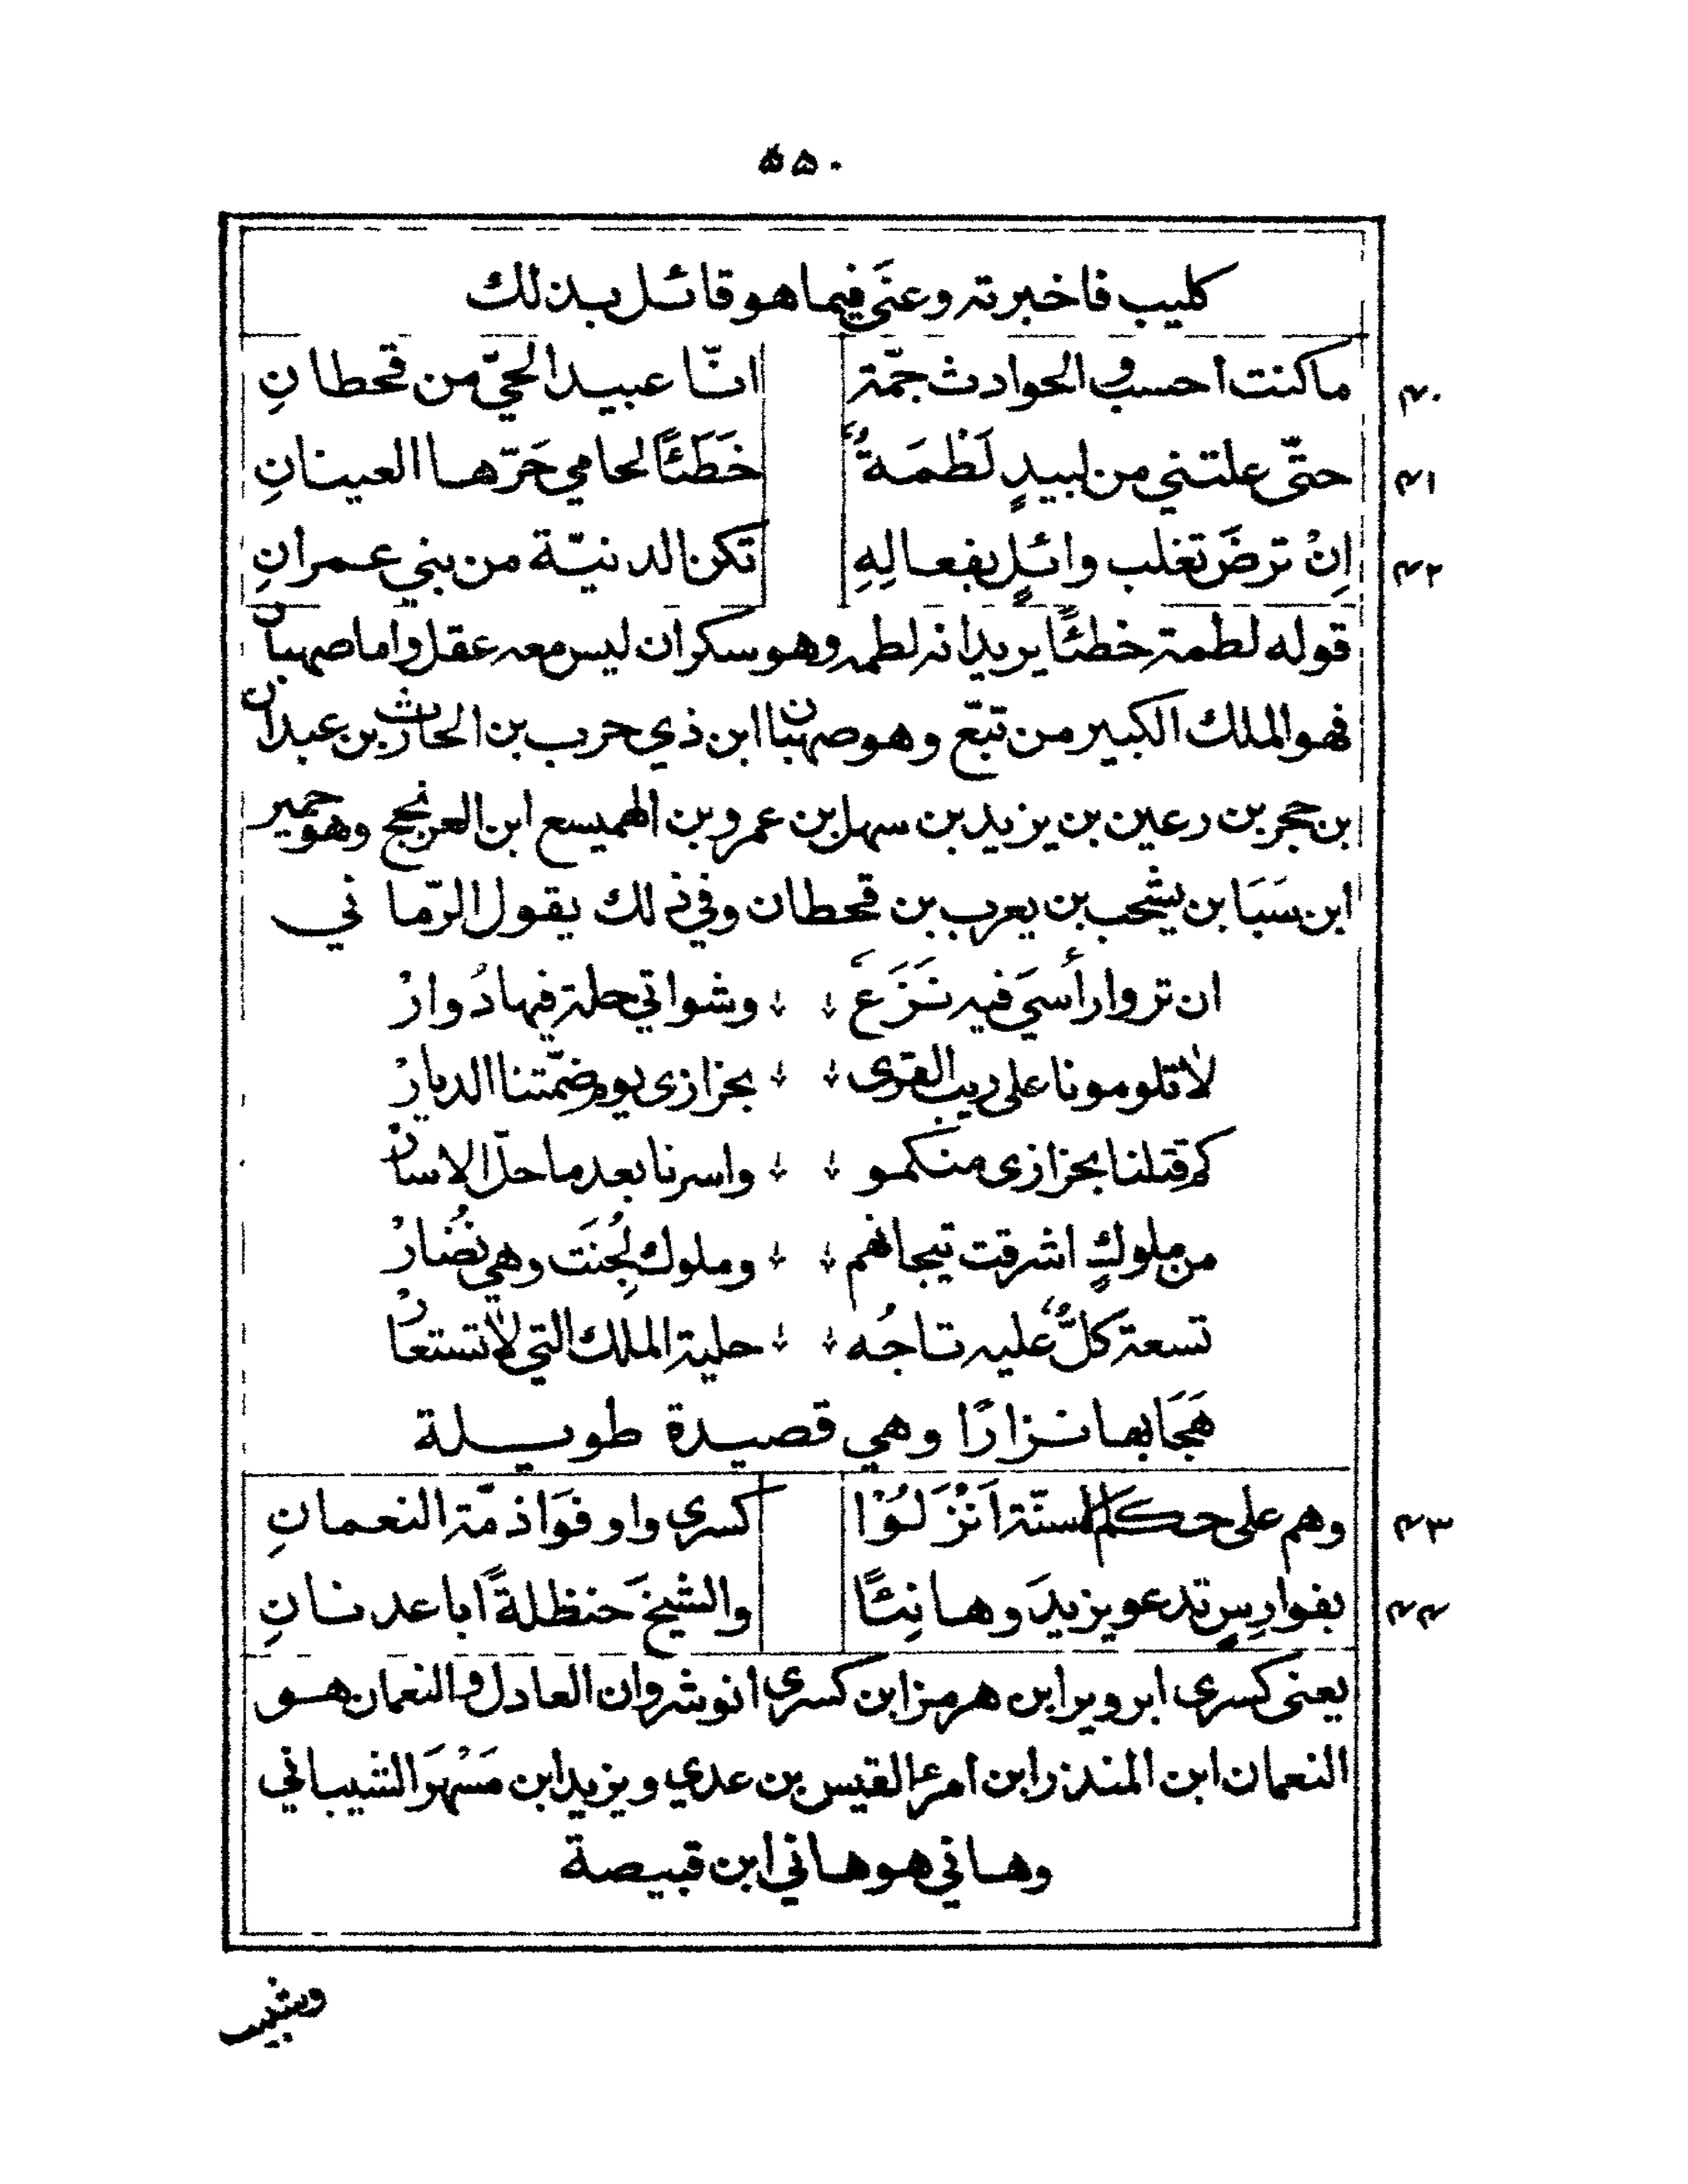 ۵۵۰
كليب فاخبرته وعنَى فيما هو قائل بذلك
۴۰ ماكنت أحسب والحوادث جمّة انّا عبيد الحيّ من قحطانِ
۴۱ حتّى علتني من لبيدٍ لَطْمَةٌ خَطَئًا لحامي حَرّها العينانِ
۴۲ اِنْ ترضَ تغلب وائلٍ بفعالِهِ تكن الدنيّة من بني عمرانِ
قوله لطمة خطئًا يريد انه لطمه وهو سكران ليس معه عقل واما صهبان
فهو الملك الكبير من تبّع وهو صهبان ابن ذي حرب بن الحارث بن عبدان
بن حجر بن رعين بن يزيد بن سهل بن عمرو بن الهميسع ابن العرنجج وهو حمير
ابن سَبَا بن يشجب بن يعرب بن قحطان وفي ذلك يقول الرّماني
ان تروا رأسيَ فيه نَزَعَ وشواتي حلة فيها دُوارْ
لا تلومونا على ريب القرى بخزازى يوم ضمّتنا الديارْ
كم قتلنا بخزازى منكمو واسرنا بعد ما حلّ الاسارْ
من ملوكٍ اشرقت تيجانهم وملوك لِجُنَت وهي نُضارْ
تسعة كلٌّ عليه تاجُه حلية الملك التي لا تستعارْ
هَجَا بها نزارًا وهي قصيدة طويلة
۴۳ وهم على حكم الاسنّة اَنْزَلُوْا كسرى واوفوَا ذمّة النعمانِ
۴۴ بفوارِسٍ تدعو يزيدَ وهانِئًا والشيخَ حنظلةً أبا عدنانِ
يعنى كسرى ابرويز ابن هرمز ابن كسرى انوشروان العادل والنعمان هو
النعمان ابن المنذر ابن امرء القيس بن عدي ويزيد ابن مَسْهَرَ الشيباني
وهاني هو هاني ابن قبيصة